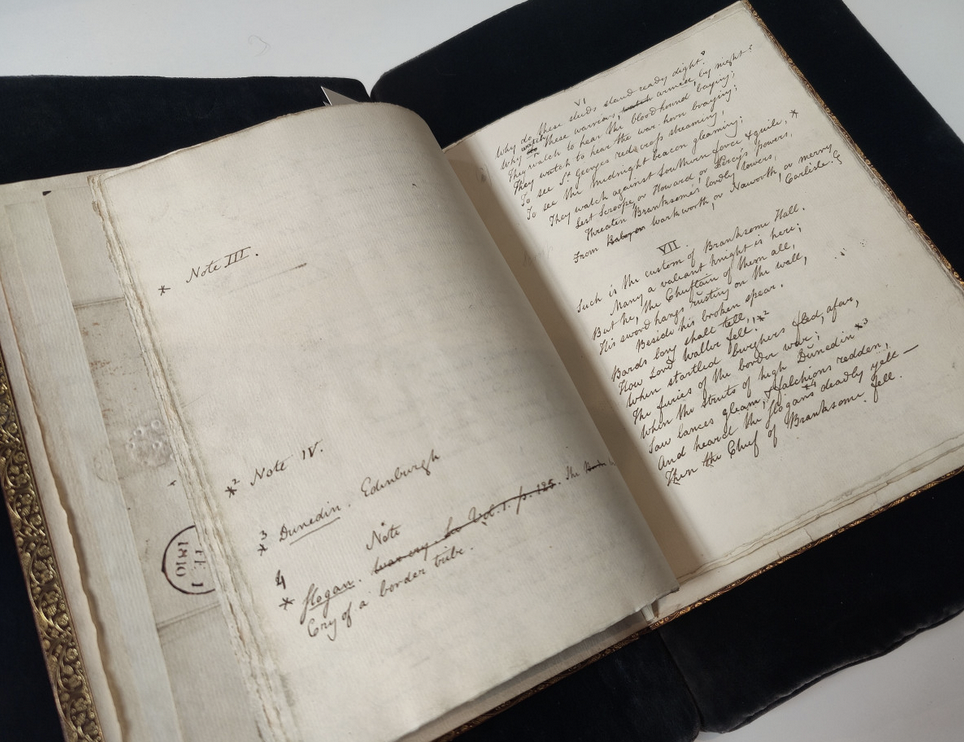 * Note III.
*2 Note IV.
*3 Dunedin. Edinburgh
Note
4
* slogan. War cry – see Vol. I. p. 195. The
Cry of a border tribe.
FE 1
1810
VI
Why do these steeds stand ready dight?
Why watch these warriors, armed, by night?
They watch to hear the bloodhound baying;
They watch to hear the war horn braying;
To see St Georges redcross streaming,
To see the midnight beacon gleaming;
They watch against Southern force & guile, *
Lest Scroope, or Howard, or Percys powers,
Threaten Branksomes lordly towers,
From Warkworth, or Naworth, or merry
Carlisle.
VII
Such is the custom of Branksome Hall.
Many a valiant knight is here;
But he, the Chieftain of them all,
His sword hangs rusting on the wall,
Beside his broken spear.
Bards long shall tell, *2
How Lord Walter fell.
When startled burghers fled, afar,
The furies of the border war;
When the streets of high Dunedin *3
Saw lances gleam, & falchions redden,
And heard the slogans *4 deadly yell –
Then the Chief of Branksome fell.